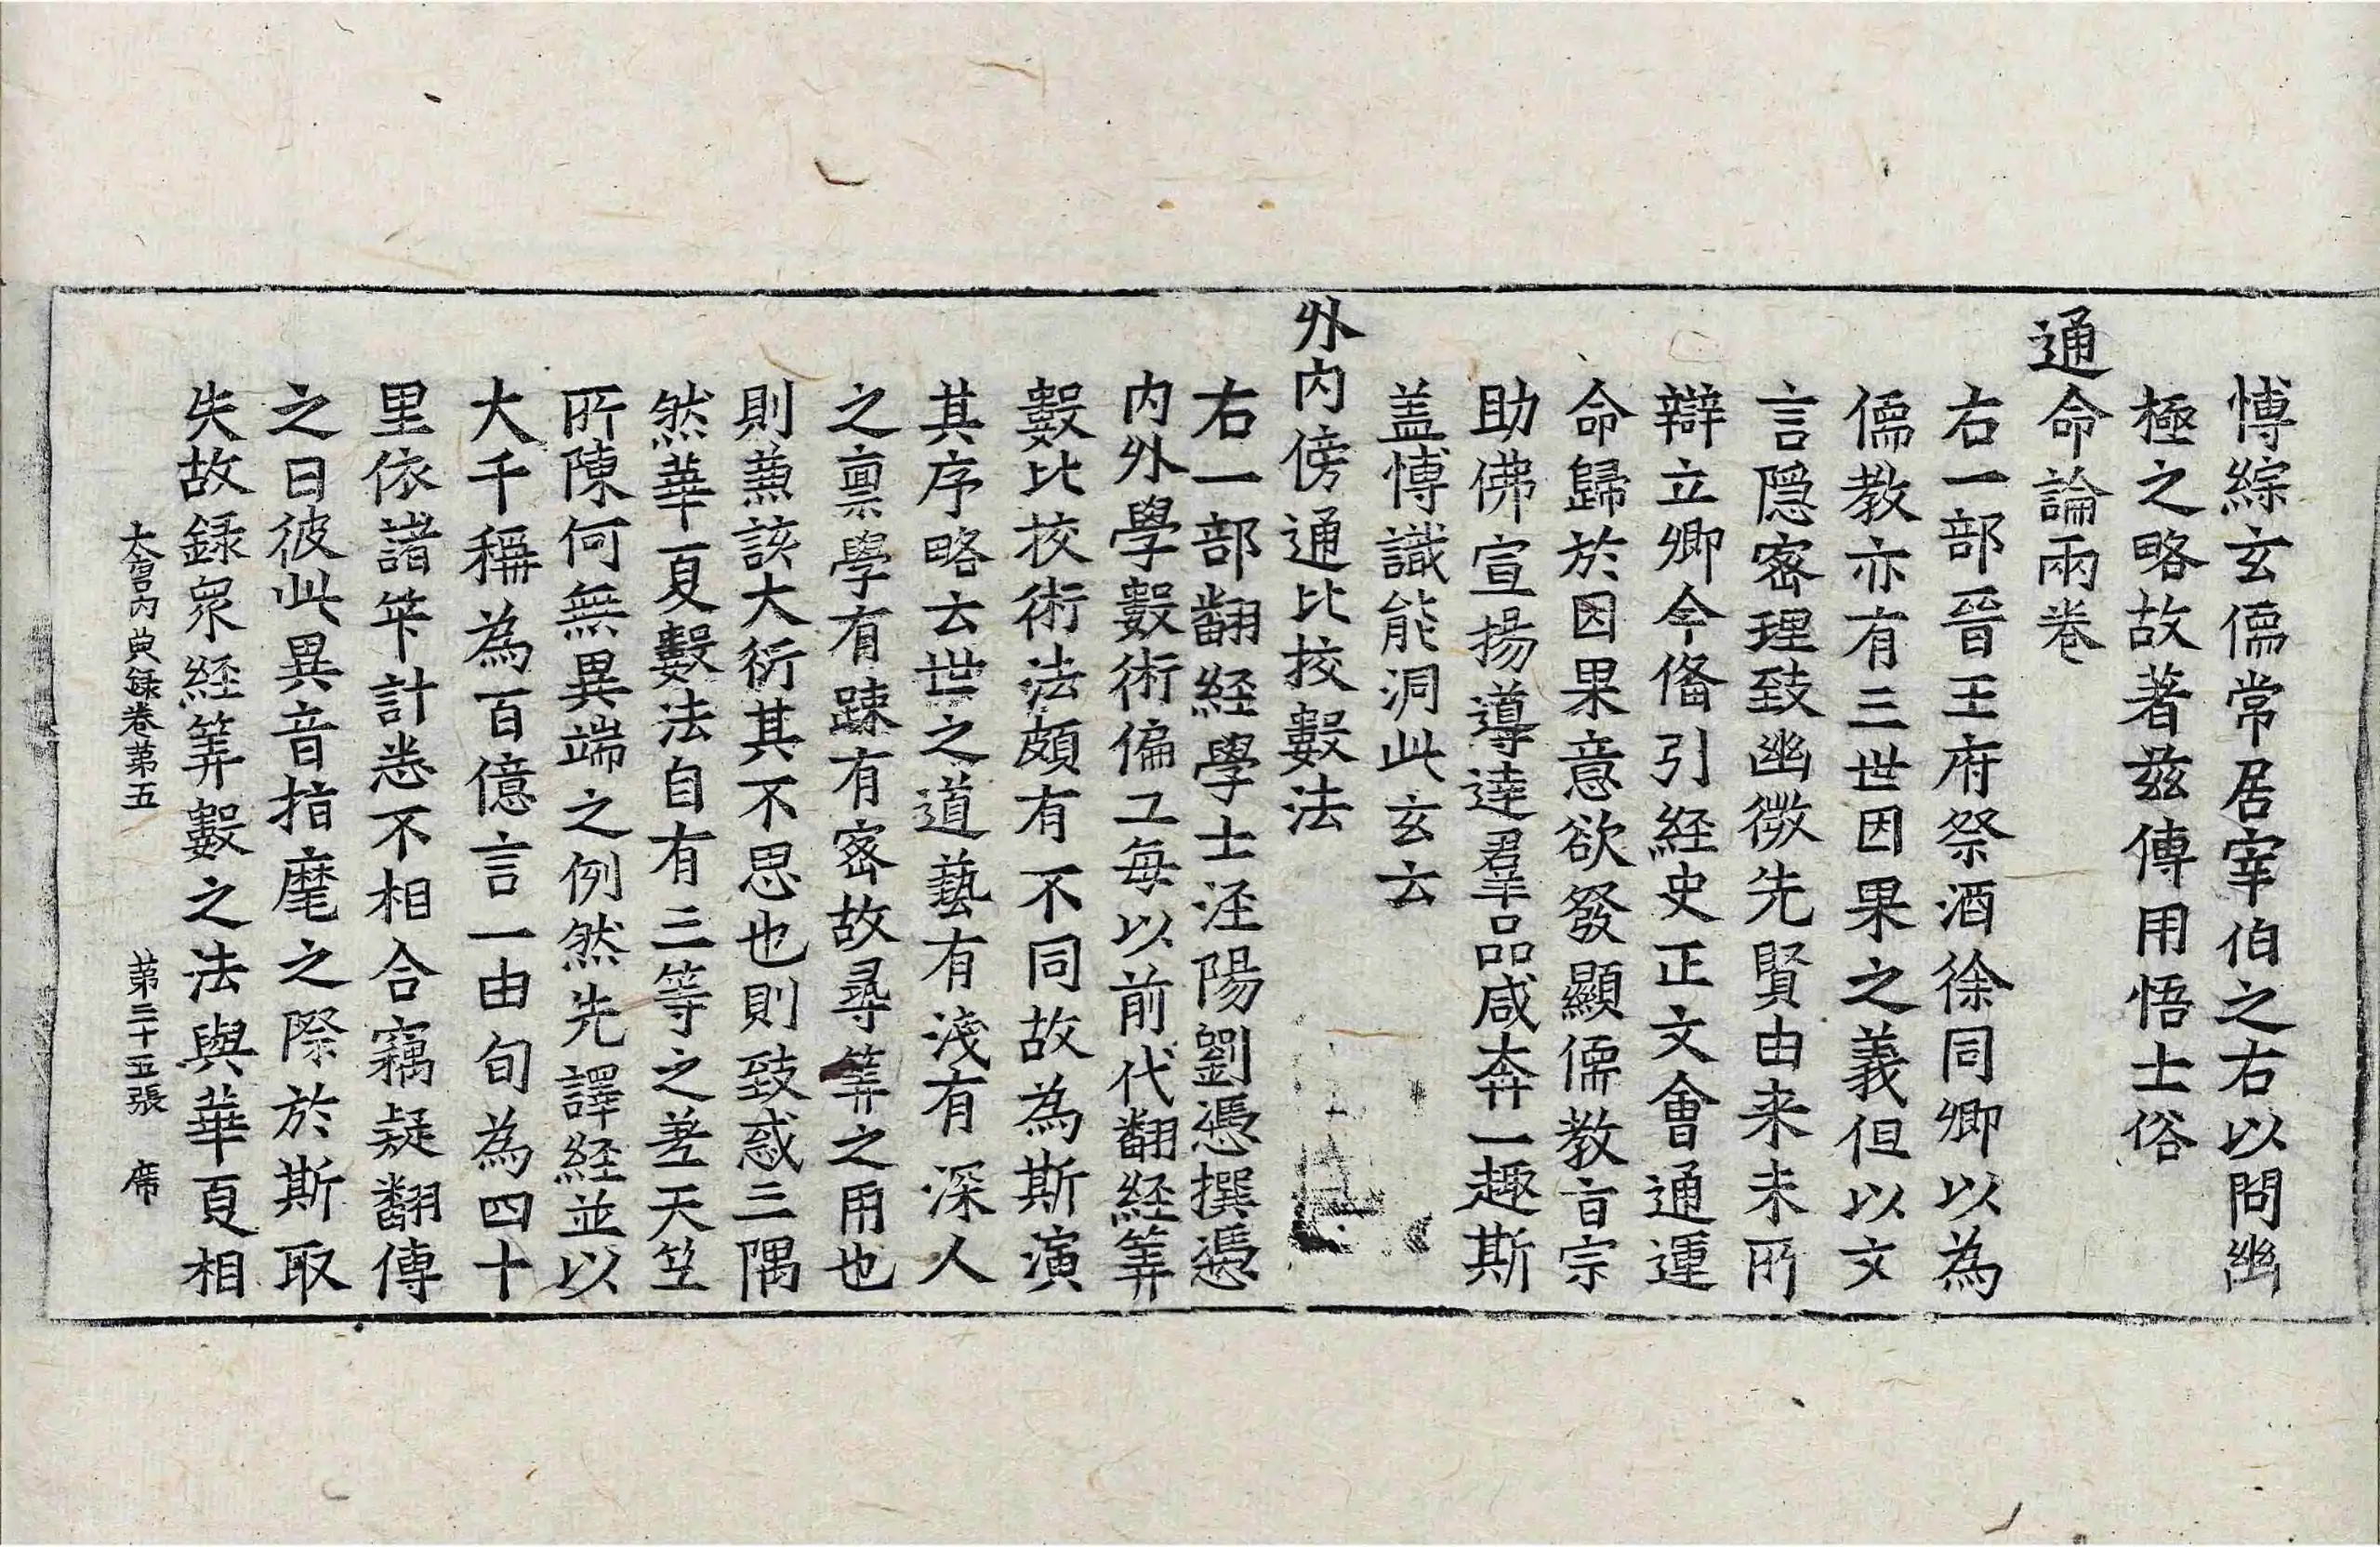 愽綜玄儒常居宰伯之右以問幽
極之略故著兹傳用悟士俗
通命論兩卷
右一部晉王府祭酒徐同卿以為
儒教亦有三世因果之義但以文
言隱宻理致幽微先賢由来未所
辯立卿今偹引経史正文會通運
命歸於因果意欲發顯儒教旨宗
助佛宣揚導達羣品咸奔一趣斯
盖愽識能洞此玄云
外内傍通比挍數法
右一部翻経學士涇陽劉憑撰憑
内外學數術偏工每以前代翻経筭
數比挍術法頗有不同故為斯演
其序略云世之道藝有淺有深人
之禀學有踈有宻故尋筭之用也
則兼該大衍其不思也則致惑三隅
然華夏數法自有三等之差天竺
所陳何無異端之例然先譯経並以
大千稱為百億言一由旬為四十
里依諸筭計悉不相合竊疑翻傳
之日彼此異音指麾之際於斯取
失故録衆経筭數之法與華夏相
大唐内典録卷第五　第三十五張　席